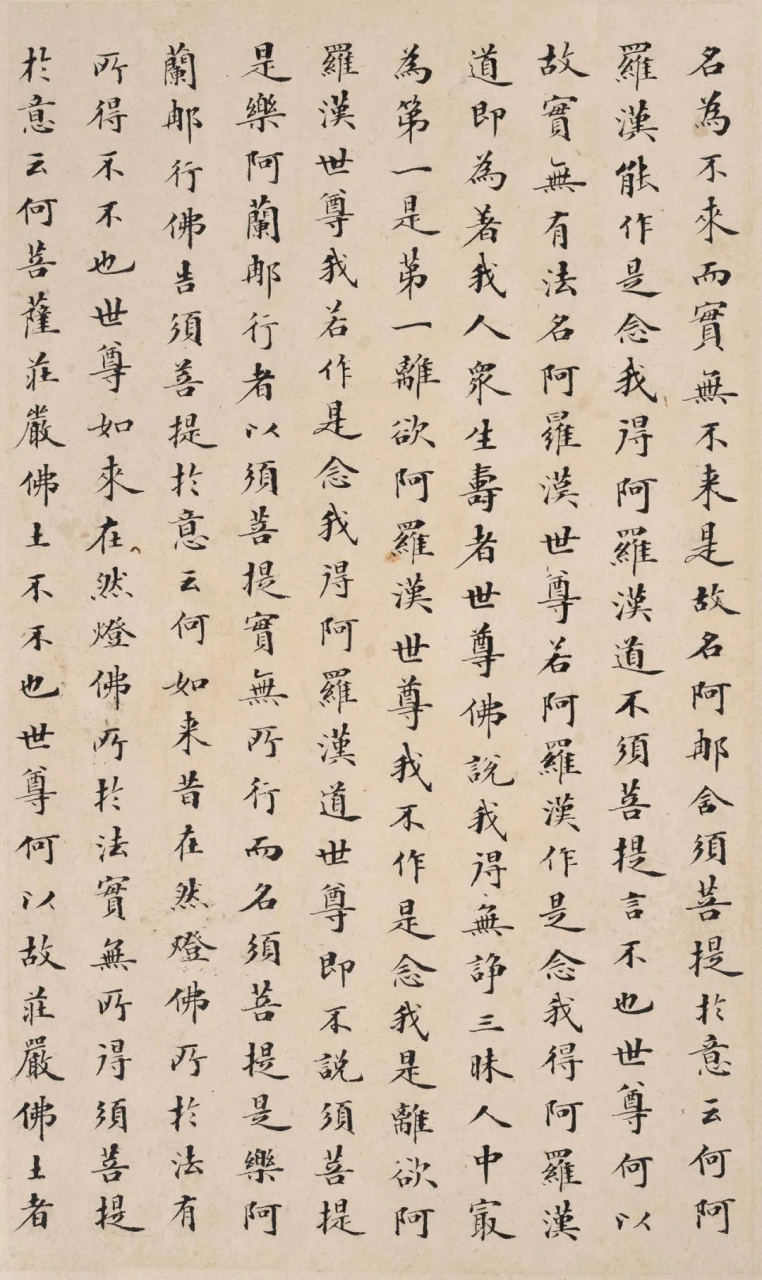 名為不來而實無不来是故名阿那含須菩提於意云何阿
羅漢能作是念我得阿羅漢道不須菩提言不也世尊何以
故實無有法名阿羅漢世尊若阿羅漢作是念我得阿羅漢
道即為著我人衆生壽者世尊佛說我得無諍三昧人中冣
為第一是第一離欲阿羅漢世尊我不作是念我是離欲阿
羅漢世尊我若作是念我得阿羅漢道世尊即不說須菩提
是樂阿蘭那行者以須菩提實無所行而名須菩提是樂阿
蘭那行佛告須菩提於意云何如来昔在然燈佛所於法有
所得不不也世尊如來在然燈佛所於法實無所得須菩提
於意云何菩薩莊嚴佛土不不也世尊何以故莊嚴佛土者